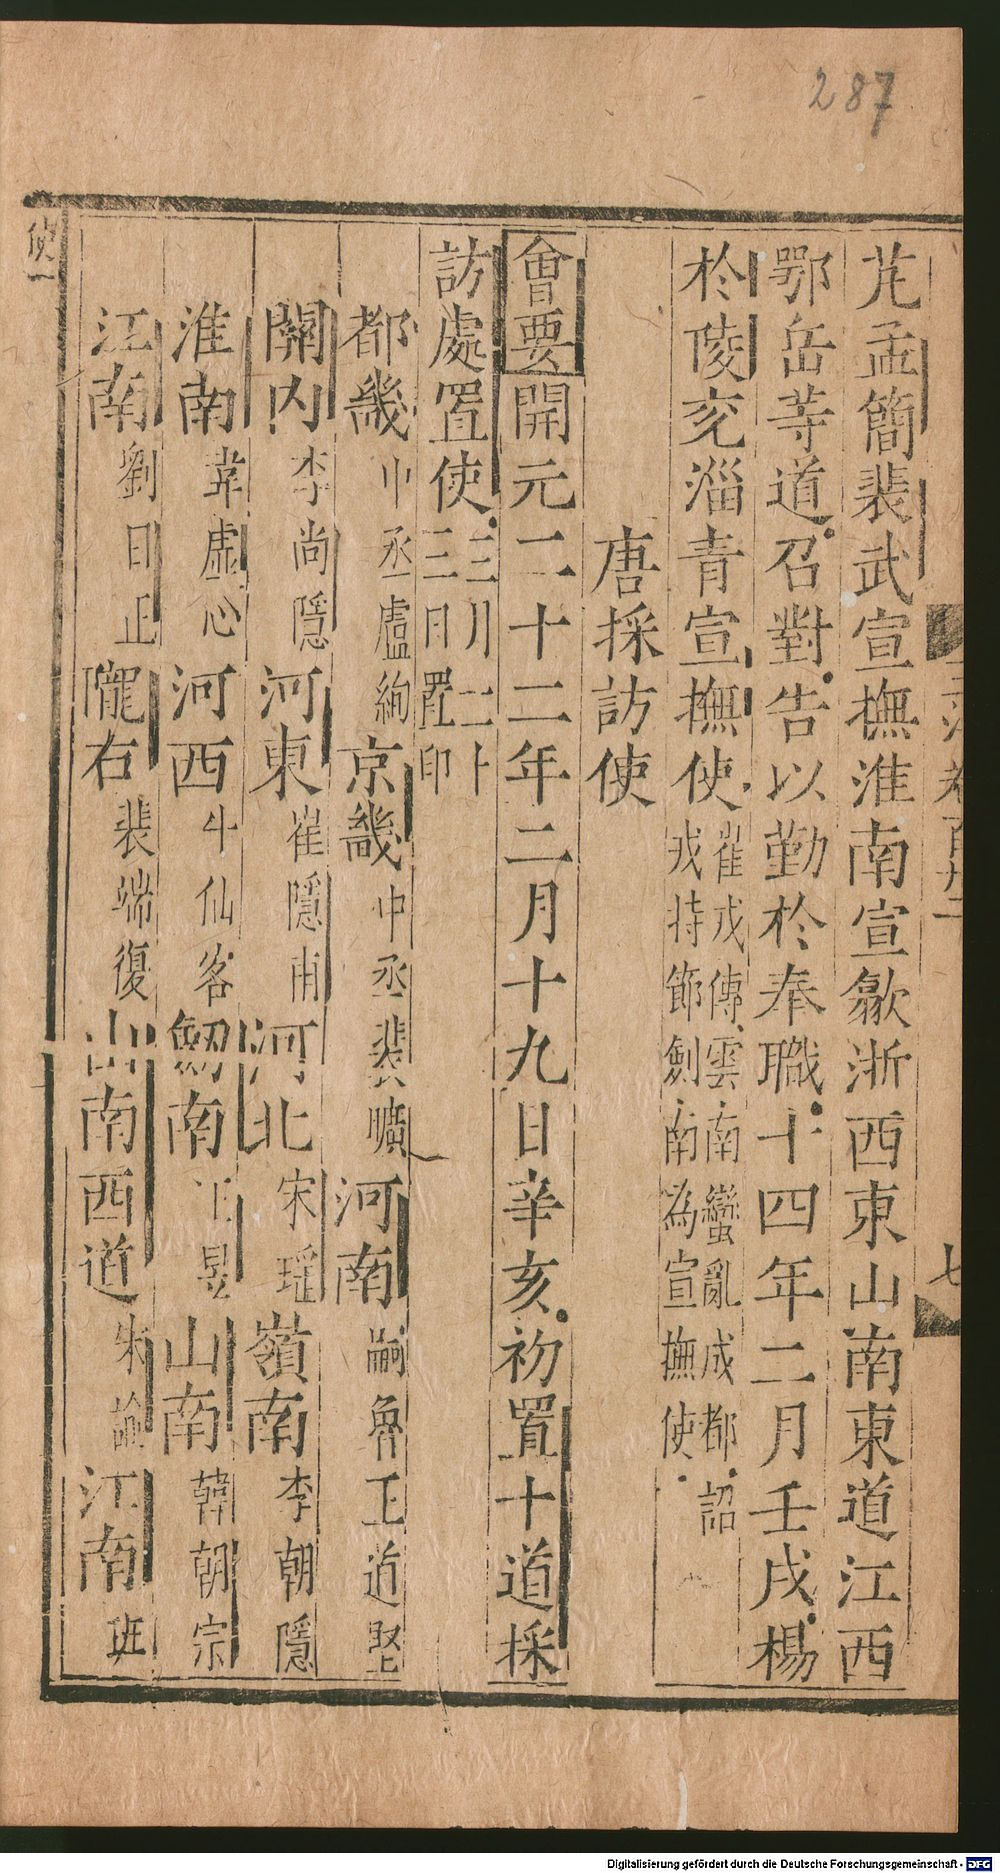 287
芃孟簡裴武宣撫淮南宣歙浙西東山南東道江西
鄂岳等道召對告以勤於奉職十四年二月壬戌楊
於陵兗淄青宣撫使崔戎傳雲南蠻亂成都詔
戎持節劍南為宣撫使
唐採訪使
會要開元二十二年二月十九日辛亥初置十道採
訪處置使二三月二十
三日置印
都畿中丞盧絢京畿中丞裴曠河南嗣魯王道堅
關內李尚隱河東崔隱甫河北宋瑤嶺南李朝隱
淮南韋虛心河西牛仙客劒南王昱山南韓朝宗
江南劉日正隴右裴端復山南西道朱諭江南班
使一
卷百卅二
七
Digitalisierung gefördert durch die Deutsche Forschungsgemeinschaft - DFG